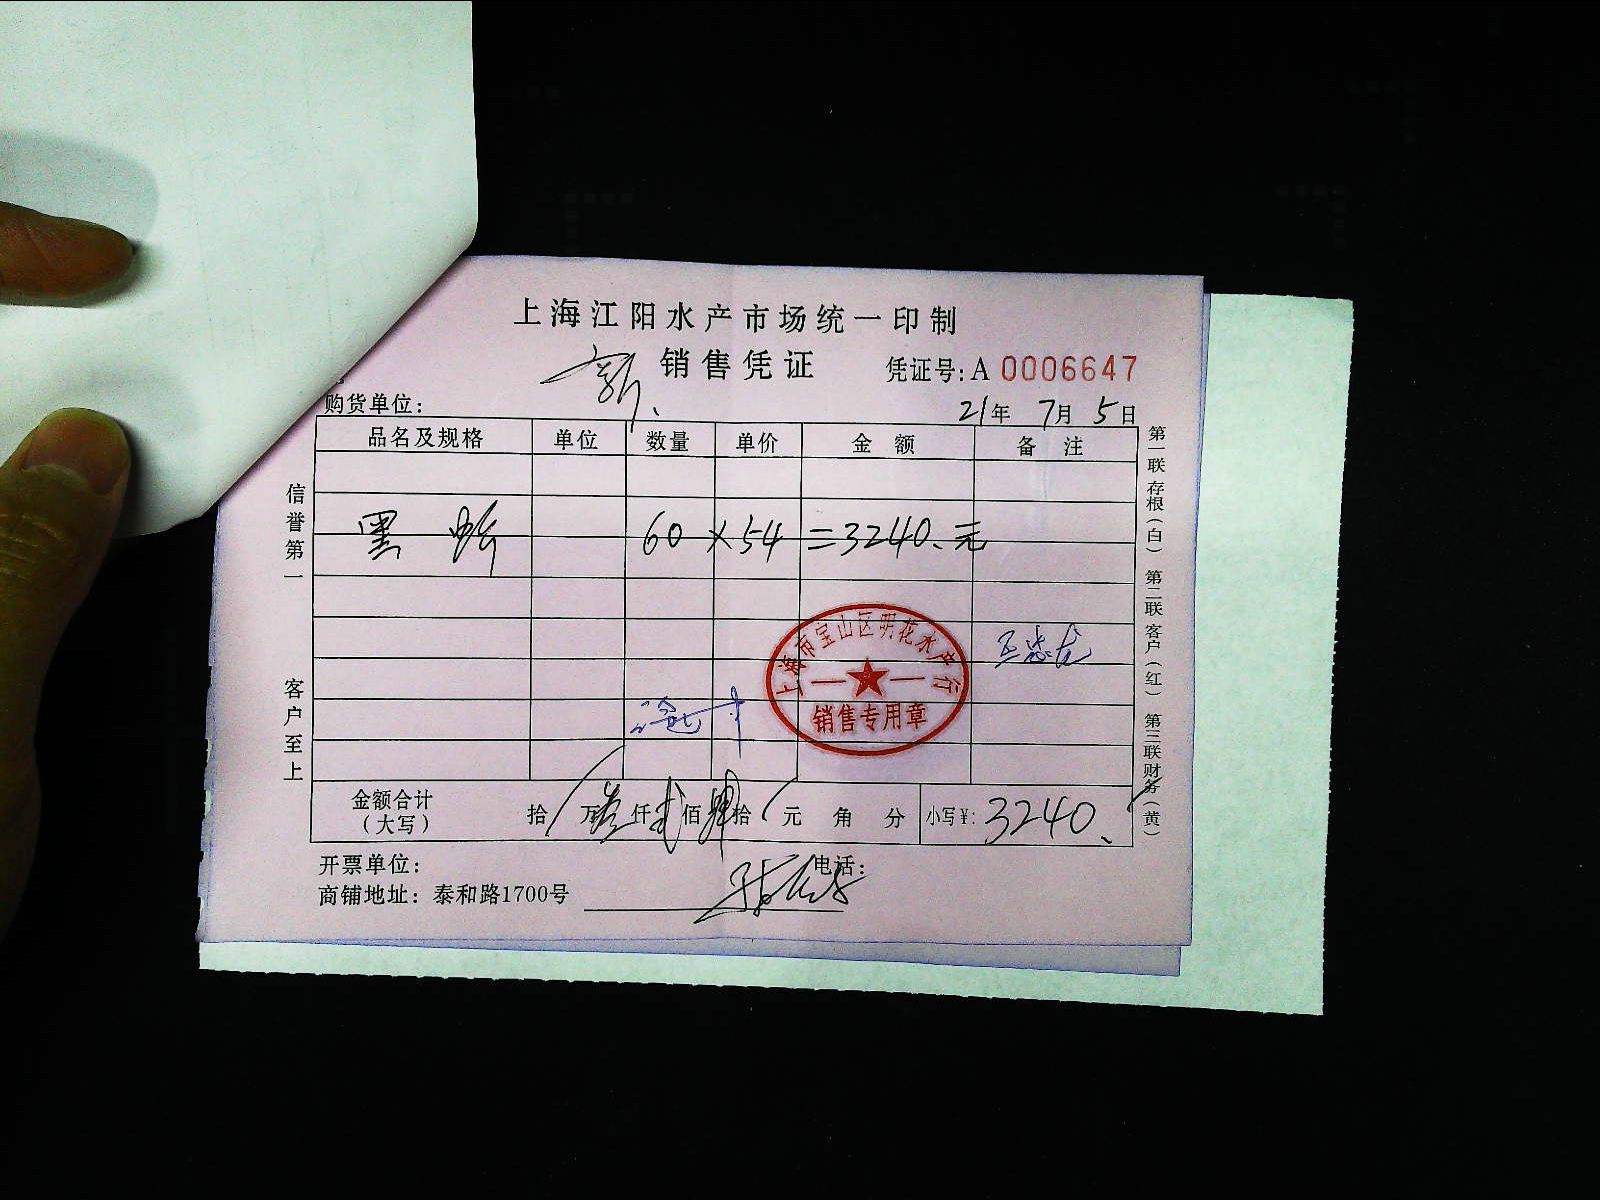 上海江阳水产市场统一印制
销售凭证
凭证号: A 0006647
新
购货单位:
21年 7月 5日
品名及规格 单位 数量 单价 金额 备注
黑蛤 60 × 54 =3240.元
上海市宝山区明花水产行
销售专用章
金额合计(大写) 拾 万叁仟弍佰肆拾 元 角 分 小写¥: 3240.
开票单位: 电话:
商铺地址: 泰和路1700号
信誉第一
客户至上
第一联 存根(白) 第二联 客户(红) 第三联 财务(黄)